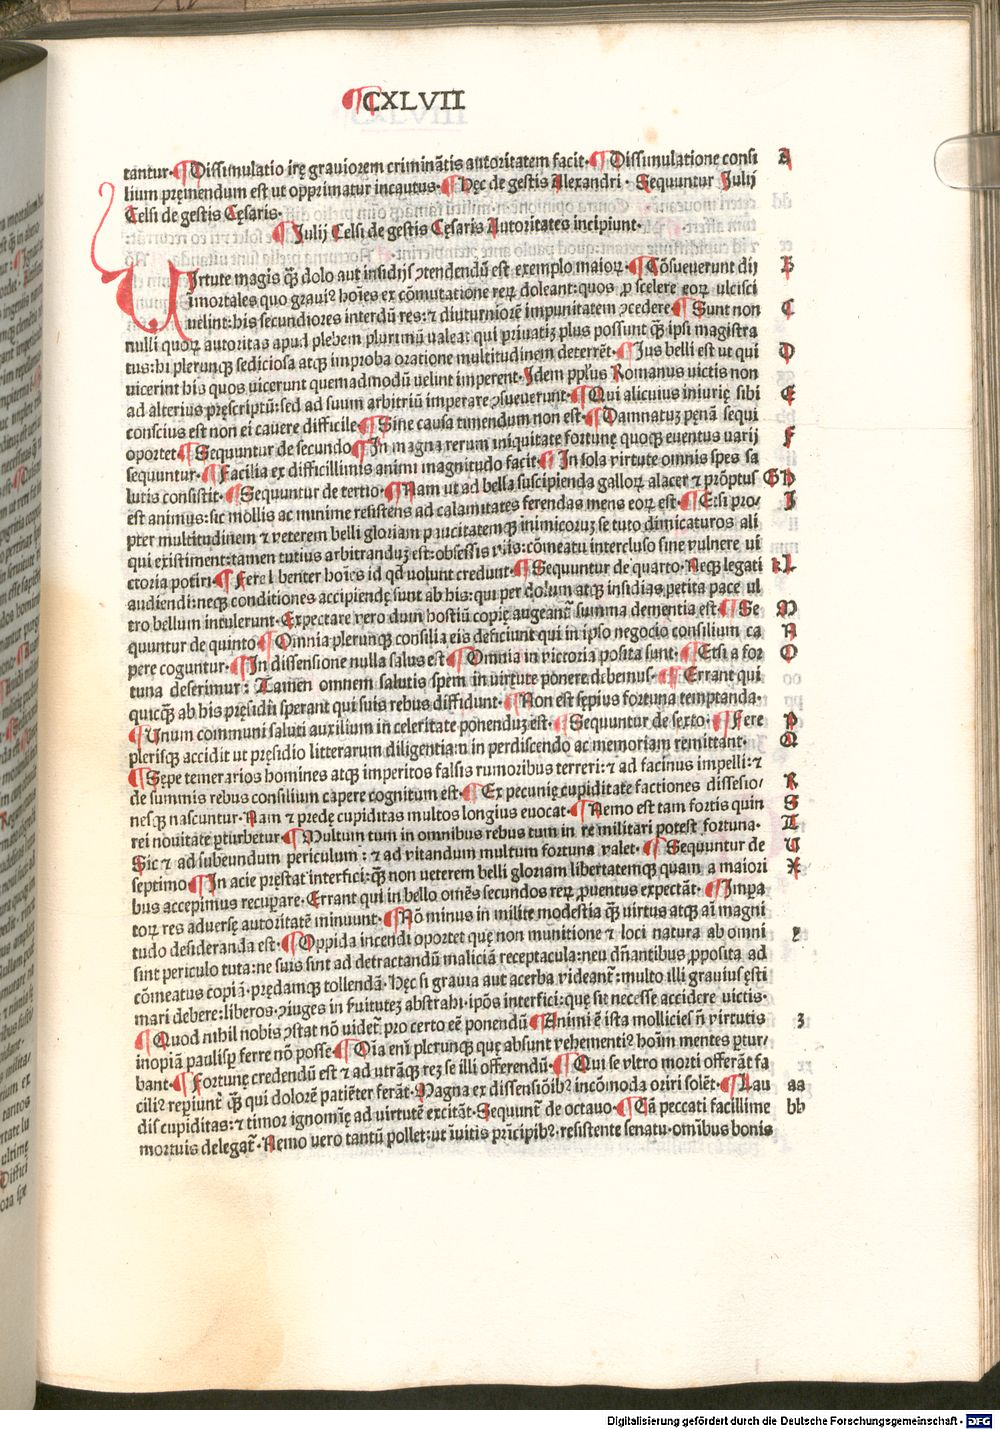 ¶CXLVII
tantur·¶Dissimulatio irę grauiorem criminātis autoritatem facit·¶Dissimulatione consi A
lium pręmendum est ut opprimatur incautus·¶Hęc de gestis Alexandri· Sequuntur Julij
Celsi de gestis Cęsaris·
¶Julij Celsi de gestis Cęsaris Autoritates incipiunt·
UIrtute magis q̃ dolo aut insidijs ꝯtendendū est exemplo maioꝝ·¶Cōsueuerunt dij B
imortales quo grauiꝰ hoīes ex cōmutatione reꝝ doleant: quos ꝓ scelere eoꝝ ulcisci
uelint: his secundiores interdū res: ⁊ diuturniorē impunitatem ꝯcedere¶Sunt non C
nulli quoꝝ autoritas apud plebem plurimū ualea: qui priuatiꝫ plus possunt q̃ ipsi magistra
tus: hi plerunqꝫ sediciosa atqꝫ improba oratione multitudinem deterrēt·¶Jus belli est ut qui D
uicerint his quos uicerunt quemadmodū uelint imperent·Idem pplus Romanus uictis non
ad alterius pręscriptū: sed ad suum arbitriū imperare ꝯsueuerunt·¶Qui alicuius iniurię sibi E
conscius est non ei cauere difficile·¶Sine causa timendum non est·¶Damnatuꝫ pęnā sequi
oportet¶Sequuntur de secundo¶In magna rerum iniquitate fortunę quoqꝫ euentus uarij F
sequuntur·¶Facilia ex difficillimis animi magnitudo facit¶In sola virtute omnis spes sa
lutis consistit·¶Sequuntur de tertio·¶Nam ut ad bella suscipienda galloꝝ alacer ⁊ prōptus GH
est animus: sic mollis ac minime resistens ad calamitates ferendas mens eoꝝ est·¶Etsi pro/ J
pter multitudinem ⁊ veterem belli gloriam paucitatemqꝫ inimicoruꝫ se tuto dimicaturos ali
qui existiment: tamen tutius arbitranduꝫ est: obsessis vijs: cōmeatu intercluso sine vulnere ui
ctoria potiri·¶Fere libenter hoīes id qđ uolunt credunt·¶Sequuntur de quarto·Neqꝫ legati kL
audiendi: neqꝫ conditiones accipiendę sunt ab his: qui per dolum atqꝫ insidias petita pace ul
tro bellum intulerunt·Expectare vero dum hostiū copię augeant̃ summa dementia est·¶Se M
quuntur de quinto¶Omnia plerunqꝫ consilia eis deficiunt qui in ipso negocio consilium ca N
pere coguntur·¶In dissensione nulla salus est¶Omnia in victoria posita sunt·¶Etsi a for O
tuna deserimur: Tamen omnem salutis spem in virtute ponere debemus·¶Errant qui
quicqꝫ ab his pręsidij sperant qui suis rebus diffidunt·¶Non est sępius fortuna temptanda·
¶Unum communi saluti auxilium in celeritate ponenduꝫ est·¶Sequuntur de sexto·¶Fere P
plerisqꝫ accidit ut pręsidio litterarum diligentiam in perdiscendo ac memoriam remittant· Q
¶Sępe temerarios homines atqꝫ imperitos falsis rumoribus terreri: ⁊ ad facinus impelli: ⁊
de summis rebus consilium capere cognitum est·¶Ex pecunię cupiditate factiones dissesio/ R
nesqꝫ nascuntur·Nam ⁊ pręde cupiditas multos longius euocat·¶Nemo est tam fortis quin S
rei nouitate ꝑturbetur·¶Multum tum in omnibus rebus tum in re militari potest fortuna· T
Sic ⁊ ad subeundum periculum: ⁊ ad vitandum multum fortuna valet·¶Sequuntur de U
septimo¶In acie pręstat interfici: q̃ non ueterem belli gloriam libertatemqꝫ quam a maiori X
bus accepimus recuꝑare·Errant qui in bello omēs secundos reꝝ ꝓuentus expectāt·¶Impa
toꝝ res aduersę autoritatē minuunt·¶Nō minus in milite modestia q̃ uirtus atqꝫ ai magni
tudo desideranda est·¶Oppida incendi oportet quę non munitione ⁊ loci natura ab omni y
sint periculo tuta: ne suis sint ad detractandū maliciā receptacula: neu dn̄antibus ꝓposita ad
cōmeatus copiā·prędamqꝫ tollendā·Hęc si grauia aut acerba videant̃: multo illi grauius ęsti
mari debere: liberos·ꝯiuges in seruitutē abstrahi·ipōs interfici: quę sit necesse accidere uictis·
¶Quod nihil nobis ꝯstat nō uidet̃ pro certo eē ponendū¶Animi ē ista mollicies n̄ virtutis 3
inopiā paulisꝑ ferre nō posse¶Oīa eni plerunqꝫ quę absunt vehementiꝰ hoīm mentes ꝑtur/
bant·¶Fortunę credendū est ⁊ ad utrāqꝫ reꝫ se illi offerendū·¶Qui se vltro morti offerāt fa
ciliꝰ reꝑiunt̃ q̃ qui dolorē patiēter ferāt·Magna ex dissensiōibꝰ incōmoda oriri solēt·¶Lau aa
dis cupiditas: ⁊ timor ignomię ad uirtutē excitāt·Sequunt̃ de octauo·¶Cā peccati facillime bb
mortuis delegat̃·Nemo uero tantū pollet: ut īuitis prīcipibꝰ·resistente senatu·omībus bonis
Digitalisierung gefördert durch die Deutsche Forschungsgemeinschaft - DFG